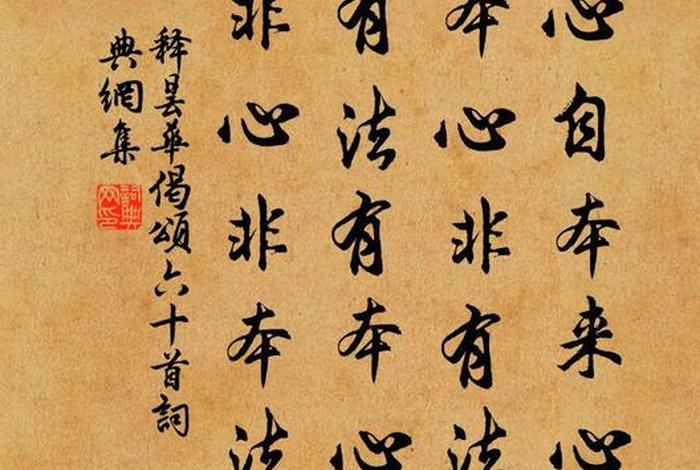 心自本来心
本心非有法
有法有本心
非心非本法
释昙华偈颂六十首詞
典網集
詞典網印